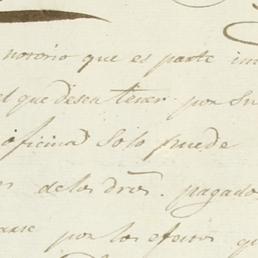 notorio que es parte
el que desea tener por su
oficina solo puede
de los dros. pagado
por los efectos